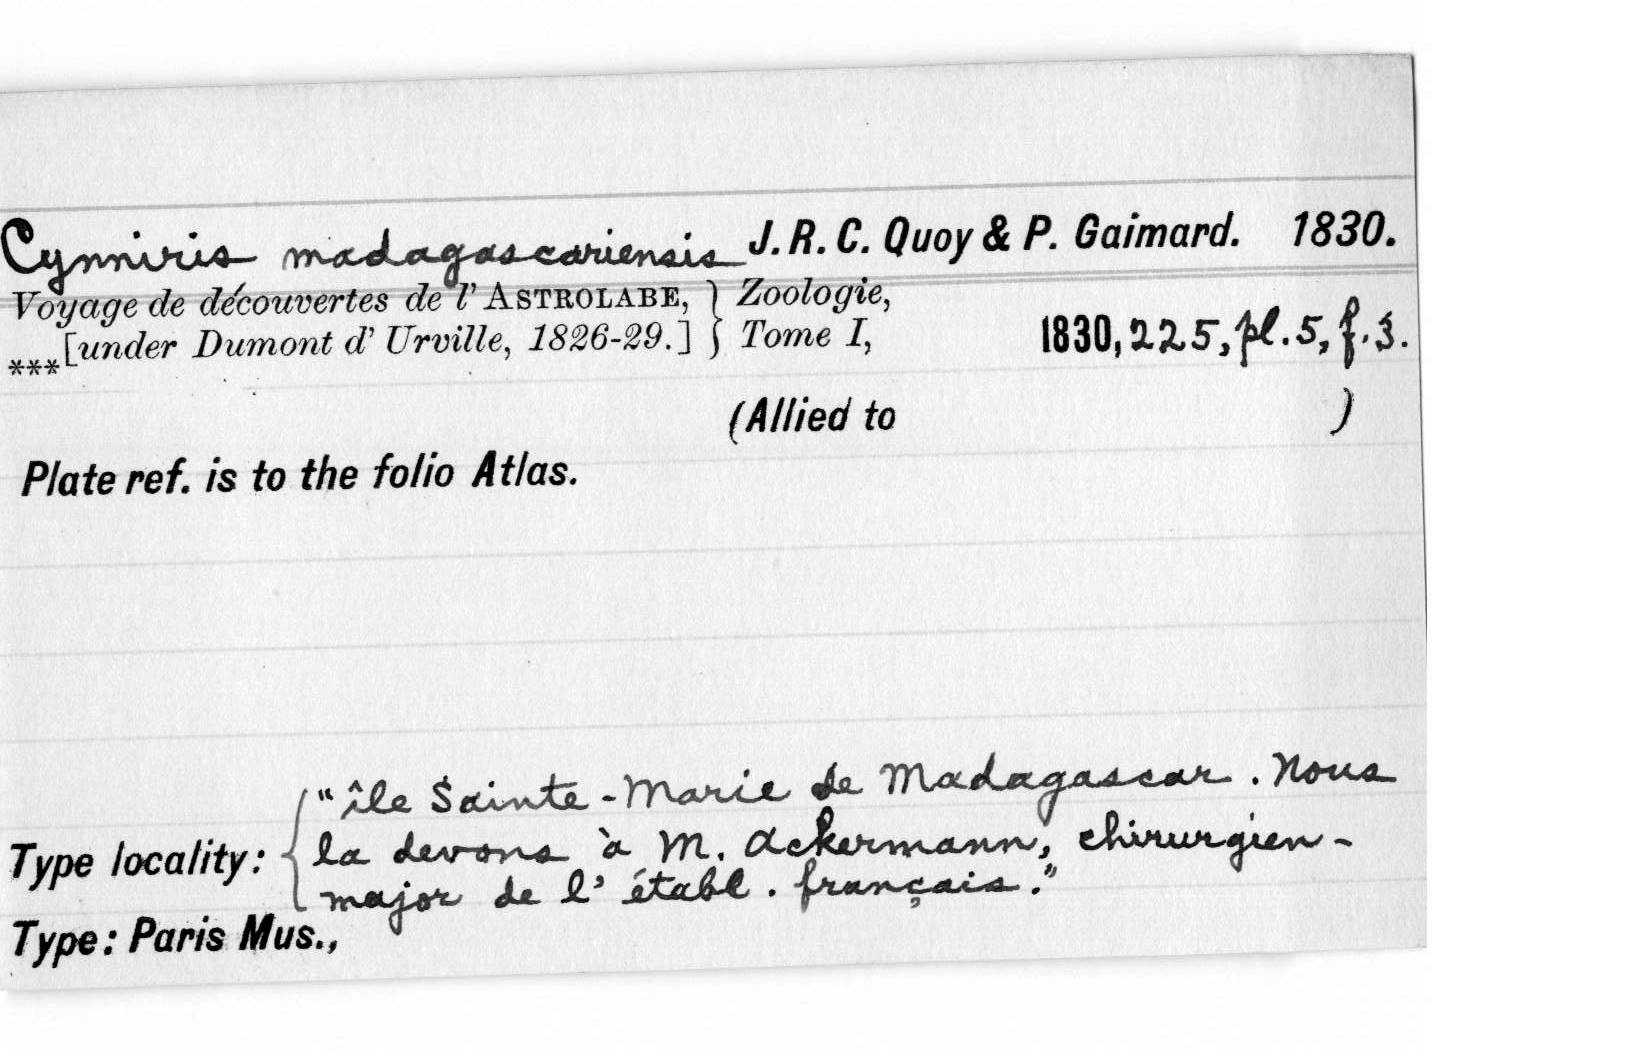 Cynniris madagascariensis J. R. C. Quoy & P. Gaimard. 1830.
Voyage de découvertes de l' ASTROLABE, } Zoologie,
***[under Dumont d' Urville, 1826-29.] } Tome I, 1830, 225, pl. 5, f. 3.
(Allied to )
Plate ref. is to the folio Atlas.
"île Sainte-Marie de Madagascar. Nous
Type locality: { la devons à M. Ackermann, chirurgien-
major de l' établ. français."
Type: Paris Mus.,